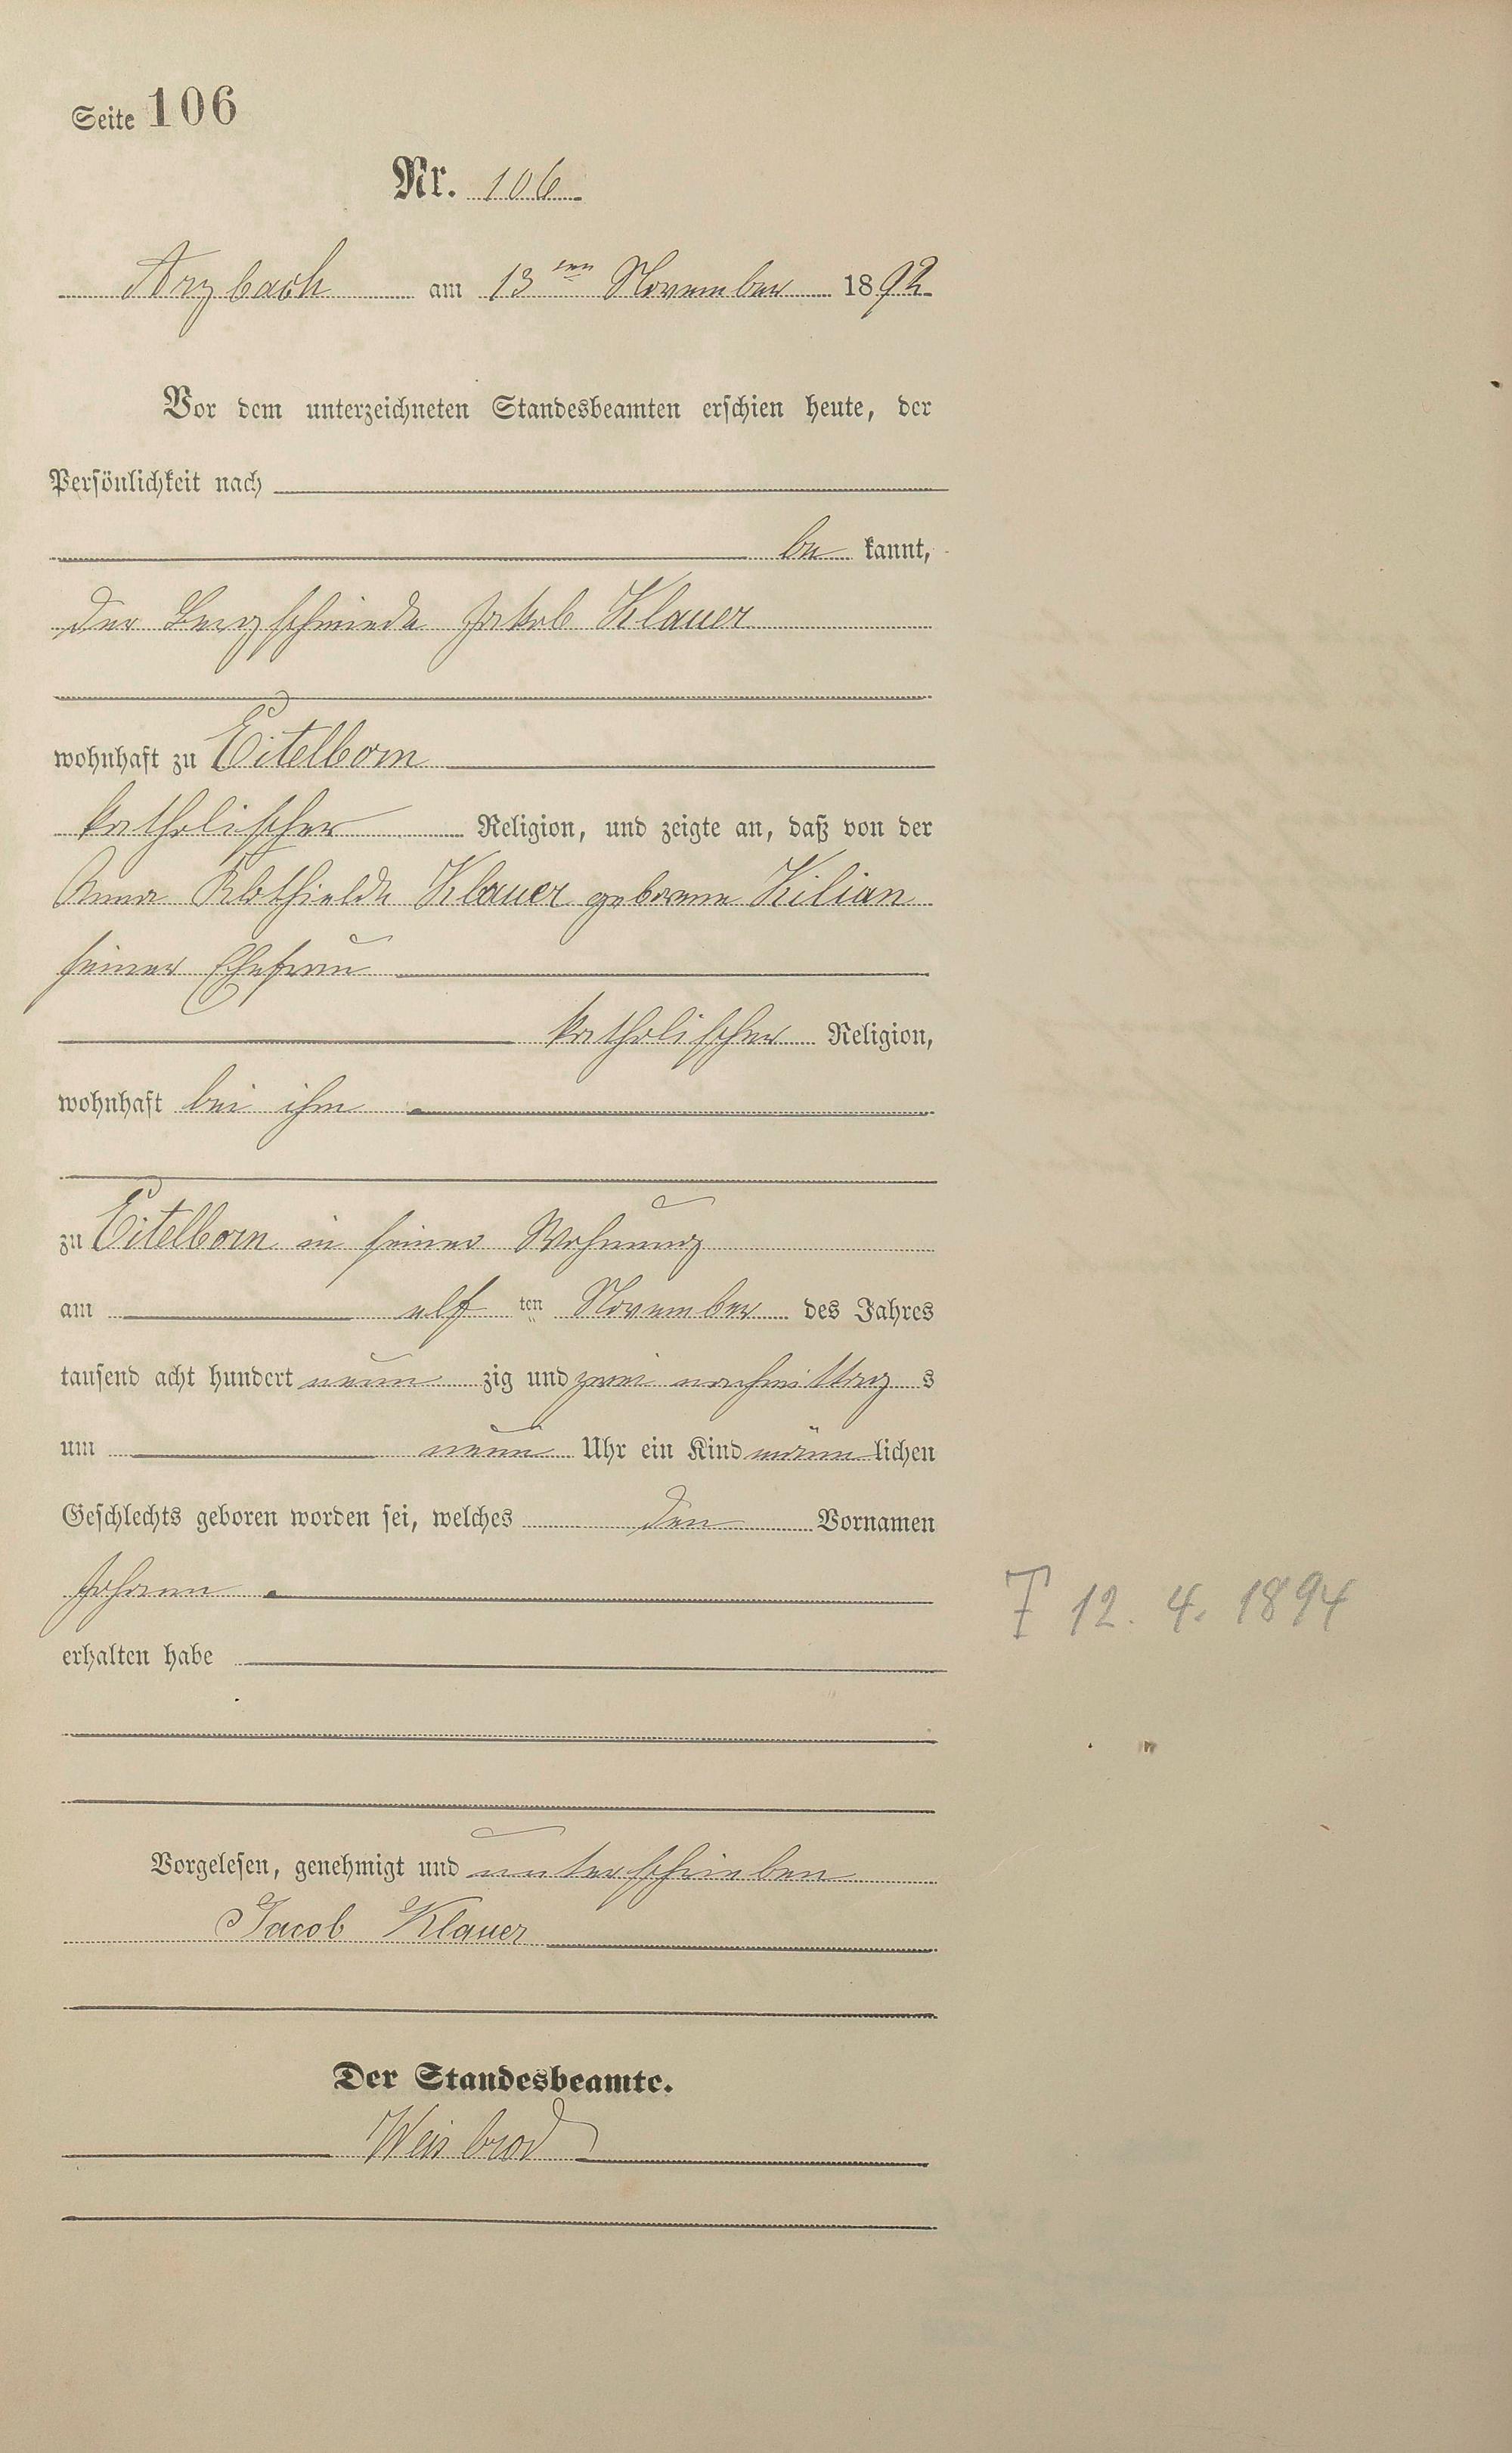 Seite 106
Nr. 106
Arzbach am 13ten November 1892
Vor dem unterzeichneten Standesbeamten erschien heute, der
Persönlichkeit nach
be kannt,
der Bergschmiede Jakob Klauer
wohnhaft zu Eitelborn
katholischer Religion, und zeigte an, daß von der
Anna Klothielde Klauer geborene Kilian
seiner Ehefrau
katholischer Religion,
wohnhaft bei ihm
zu Eitelborn in seiner Wohnung
am elf ten November des Jahres
tausend acht hundert neun zig und zwei nachmittag s
um neun Uhr ein Kind männ lichen
Geschlechts geboren worden sei, welches den Vornamen
Johann
† 12. 4. 1894
erhalten habe
Vorgelesen, genehmigt und unterschrieben
Jacob Klauer
Der Standesbeamte.
Weisbrod